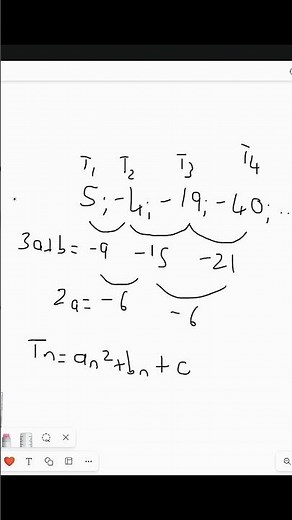 T₁ T₂ T₃ T₄
5; -4; -19; -40; ...
3a+b = -9 -15 -21
2a = -6 -6
Tn = an² + bn + c
T